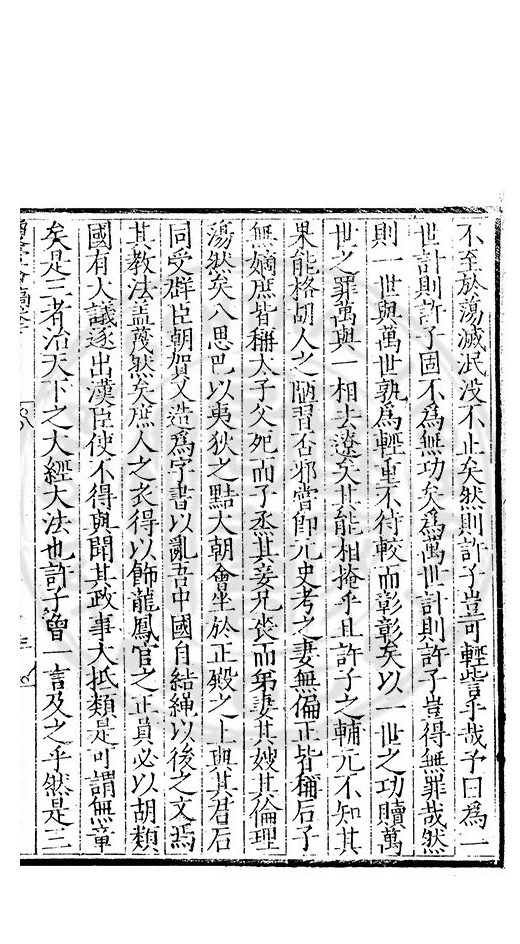 不至於蕩滅泯没不止矣然則許子豈可輕訾乎哉予曰為一
世計則許子固不為無功矣為萬世計則許子豈得無罪哉然
則一世與萬世孰為輕重不待較而彰彰矣以一世之功贖萬
世之罪萬與一相去遼矣其能相掩乎且許子之輔元不知其
果能格胡人之陋習否邪嘗即元史考之妻無偏正皆稱后子
無嫡庶皆稱太子父死而子烝其妾兄喪而弟妻其嫂其倫理
蕩然矣八思巴以夷狄之黠大朝會坐於正殿之上與其君后
同受群臣朝賀又造為字書以亂吾中國自結繩以後之文焉
其教法盖蔑然矣庶人之衣得以飾龍鳳官之正員必以胡類
國有大議逐出漢臣使不得與聞其政事大抵類是可謂無章
矣是三者治天下之大經大法也許子曾一言及之乎然是三